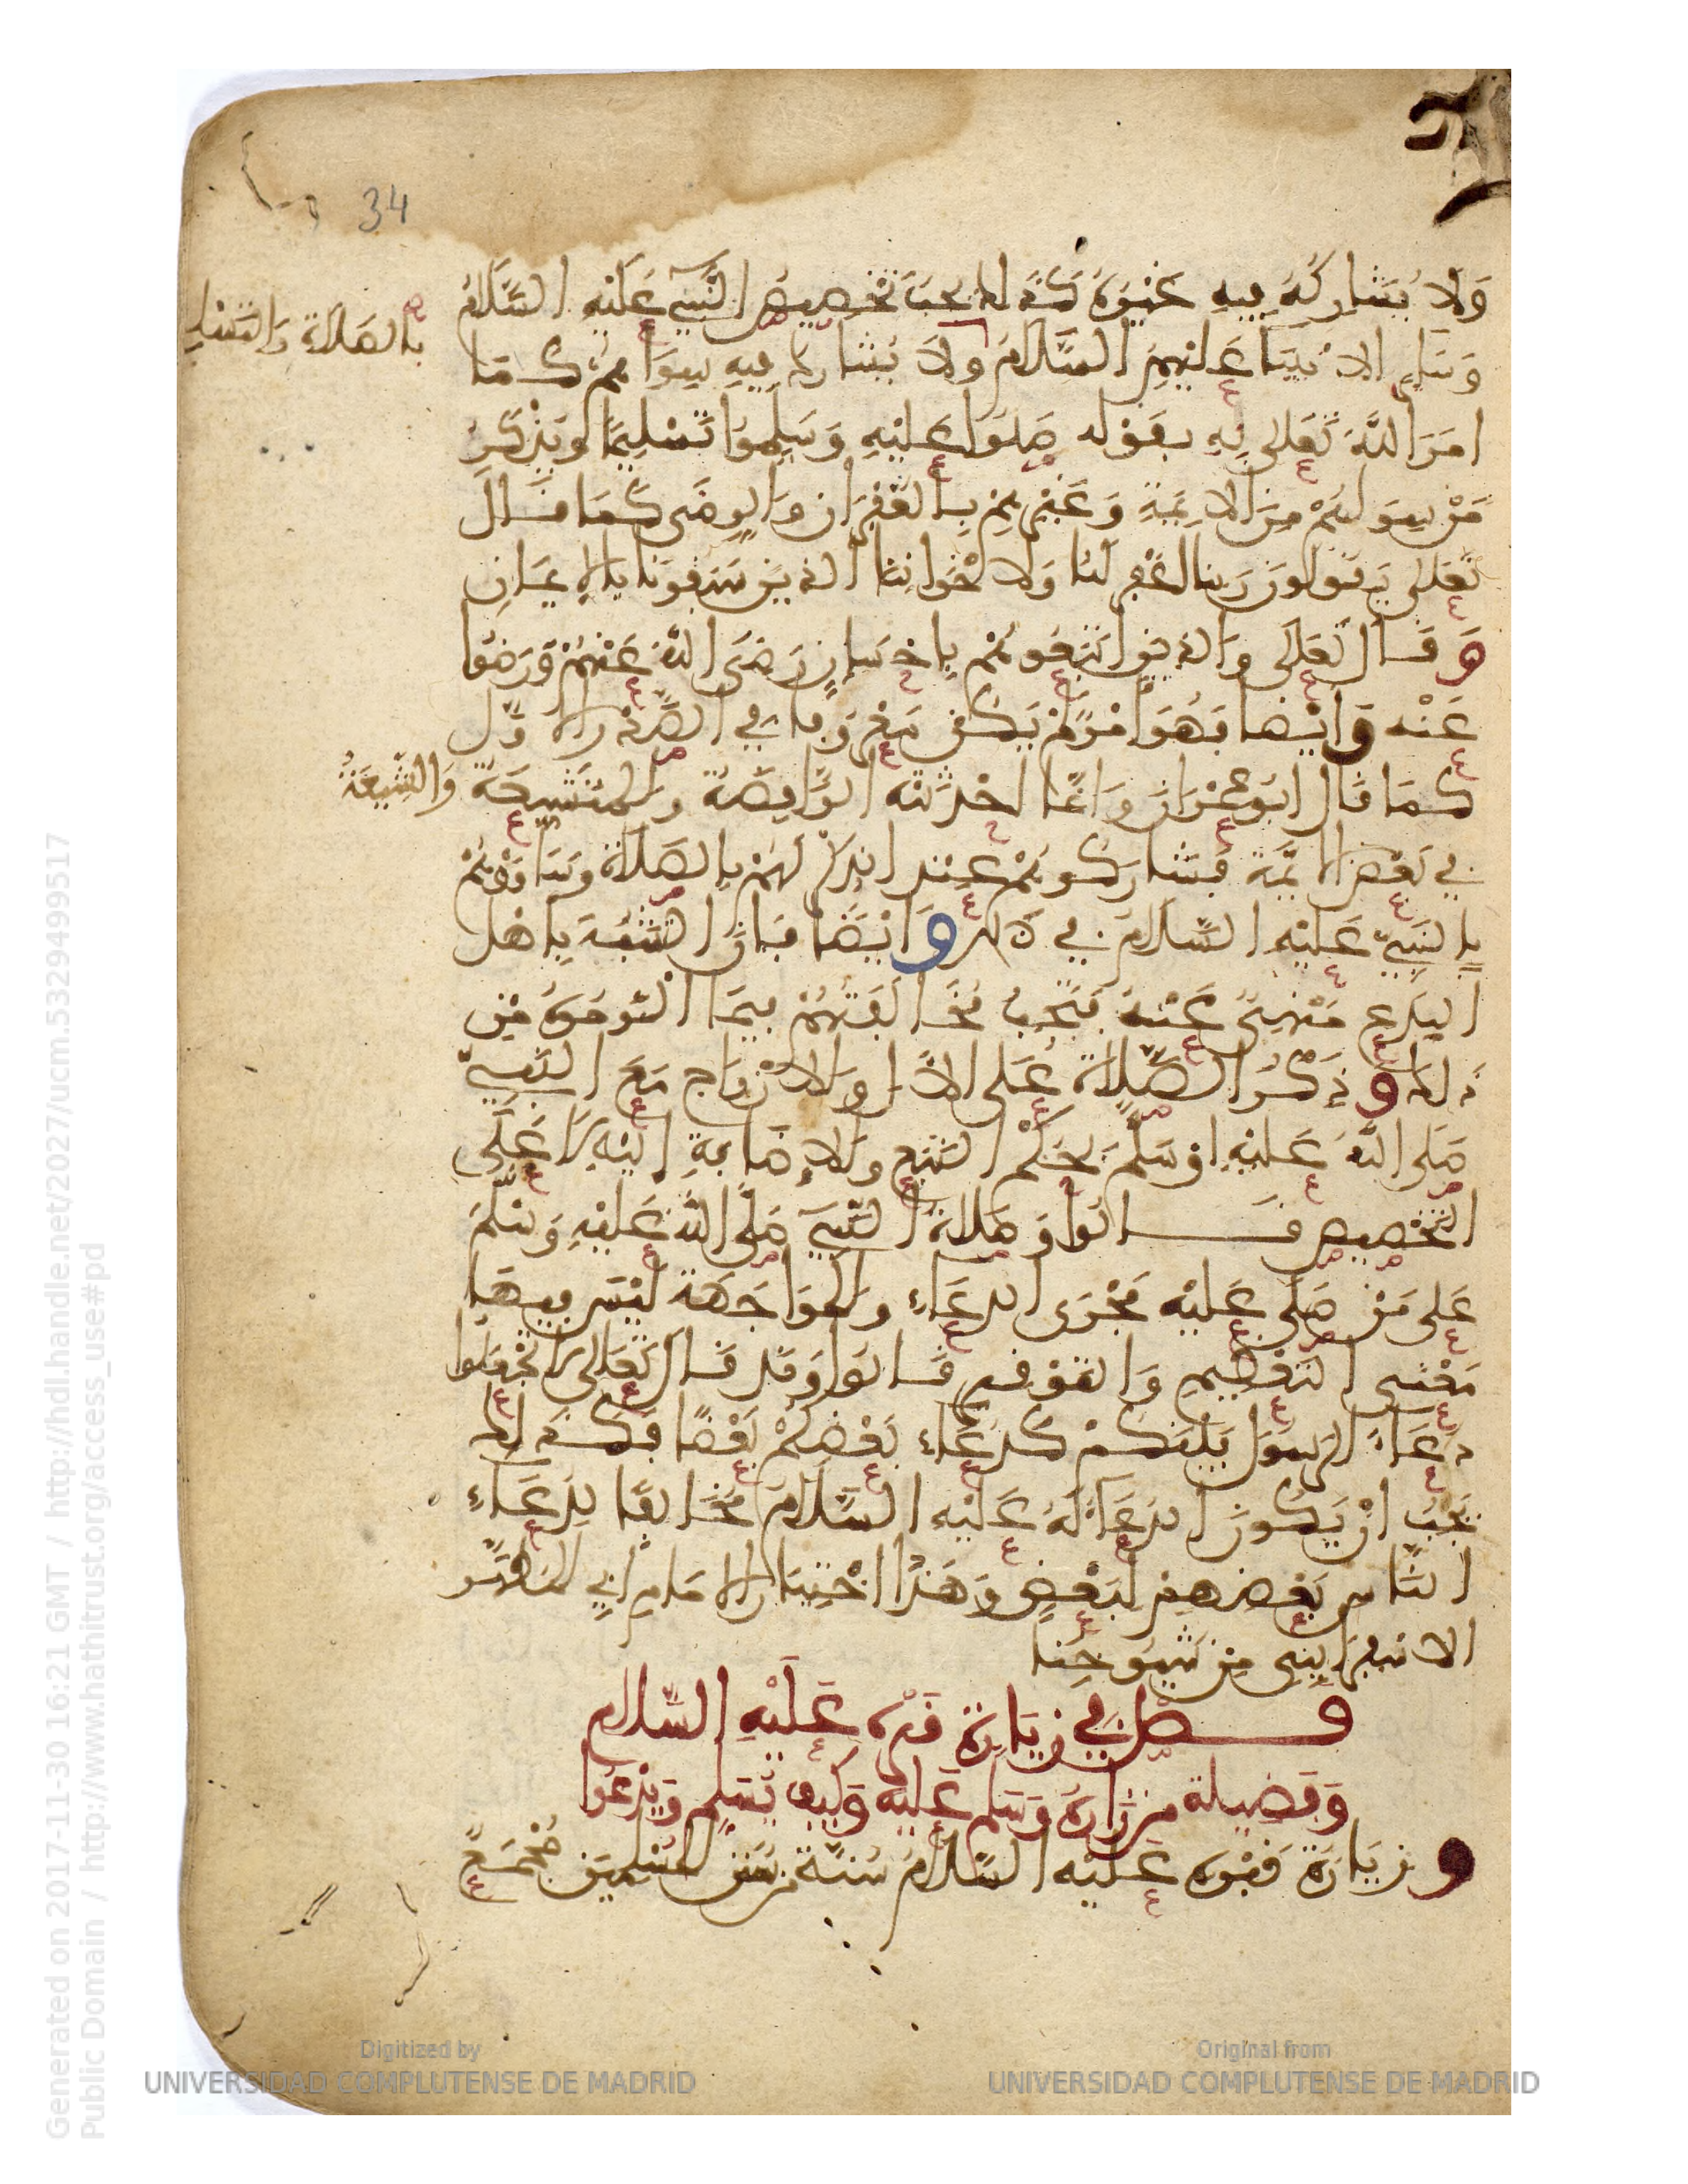 34
وَلَا يُشَارِكُهُ فِيهِ غَيْرُهُ كَذَلك يجبُ تَخْصِيصُ النَّبِيِّ عَلَيْهِ السَّلَامُ
بالصَلاة وَالتسليم
وَسَايِرِ الانبيَا عَلَيْهِمُ السَّلَامُ وَلَا يُشارك فِيهِ سِوَاهُمْ كَمَا
امَرَ اللَّهُ تَعَلى بِهِ بقَوْله صَلُوا عَلَيْهِ وَسَلِّمُوا تَسْلِيمًا ويُذْكَرُ
مَنْ سِوَاهُمْ مِنَ الايمَّةِ وَغَيْرِهِمْ بِالغُفْرَانِ وَالرِضَى كَمَا قَالَ
تَعَلى يَقُولُونَ رَبنا اغْفِر لَنَا وَلاخْوَانِنَا الذِينَ سَبَقُونَا بِالاِيمَانِ
وَقَالَ تَعَالَى وَالذينَ اتَّبَعُوهُمْ بِإحْسَانٍ رَضَى اللَّهُ عَنْهُمْ وَرَضُوا
عَنْه وَايْضا فَهُوَ امْرٌ لَمْ يَكُن مَعْرُوفا فِي الصَّدْرِ الاَوَّل
كمَا قَال ابُو عِمْرَانَ وَانمَّا احْدَثَتْه الرَّافِضَة وَالمُتَشَيِعَة وَالشِّيعَةُ
في بَعْضِ الايمَّة فَشارَكُوهُمْ عِنْد الذِكْرِ لَهُمْ بِالصَلَاة وَسَاوَوْهُمْ
بِالنَبِيِّ عَلَيْهِ السَّلَامُ فِي ذَلك وَايْضًا فَانَّ التشَبُهَ بِاهْل
البِدَع مَنْهِيٌ عَنْهُ فَتَجِبُ مُخَالَفَتُهُمْ فِيمَا الْتَزمُوهُ مِن
ذَلك وَذِكْرُ الصَّلَاة عَلَى الآل وَالازْوَاج مَعَ النَّبِيِّ
صَلى اللَّهُ عَلَيْهِ وَسَلَّمَ بحُكْم التَبَع وَالاِضَافَةِ اِلَيْهِ لَا عَلَى
التخْصِيصِ قَالُوا وَصَلاة النَّبِيِّ صَلَّى اللَّهُ عَلَيْهِ وَسَلَّمَ
عَلَى مَنْ صَلَّى عَلَيْه مَجْرَى الدعَاءِ وَالمُوَاجَهَة لَيْسَ فِيهَا
مَعْنَى التعْظِيمِ وَالتَوْقِيرِ قَالُوا وَقَد قَالَ تَعَلى لَا تَجْعَلُوا
دُعَاءَ الرَسُولِ بَيْنَكمْ كَدُعَاءِ بَعْضِكُمْ بَعْضًا فَكَذَلك
يَجِبُ انْ يَكُونَ الدعَاءُ لَهُ عَلَيْه السَّلَامُ مُخَالِفًا لِدعَاءِ
النَّاسِ بَعْضِهِمْ لِبَعْضٍ وَهَذَا اخْتِيَارُ الاِمَامِ ابِي المُظَفَّر
الاسْفَرَاينِى مِنْ شُيُوخِنَا
فصْل فِي زِيَارَةِ قَبْرِه عَلَيْهِ السَّلَام
وَفَضِيلَة مَنْ زَارَهُ وَسَلم عَلَيْه وَكَيْف يُسَلِّم وَيَدْعُوا
وَزيَارَة قَبْرِه عَلَيْه السَّلَامُ سُنَّة مِنْ سُنَنِ المُسْلِمِين مُجْمَعٌ